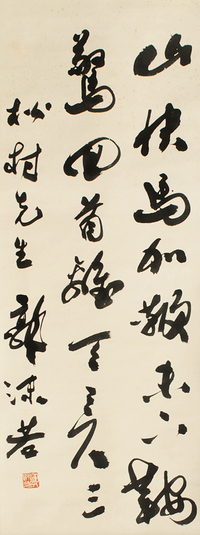 山快馬加鞭未下鞍
驚回首離天三尺三
松村先生 郭沫若